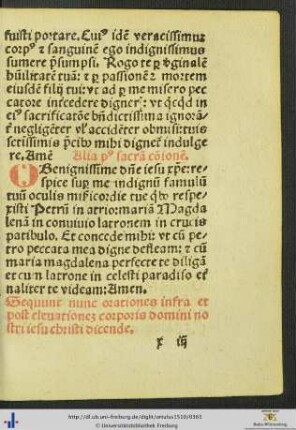 fuisti portare. Cui⁹ idē veracissimuꝫ
corp⁹ ⁊ sanguinē ego indignissimus
sumere p̄sumpsi. Rogo te ꝑ v̓ginalē
hūilitatē tuā: ⁊ ꝑ passionē ⁊ mortem
eiusdē filij tui: vt ad ꝑ me misero pec
catore īt̓cedere digner̄: vt qc̄qd in
ei⁹ sacrificatōe bn̄dictissima ignorā
t̓ negligēter vl̓ accidēter obmisi: tuis
sctissimis p̄cib⁹ mihi dignet̓ indulge
re. Amē Alia p⁹ sacrā cōionē.
O Benignissime dn̄e iesu xp̄e: re
spice sup me indignū famulū
tuū oculis mīẜicordie tue qb⁹ respe
xisti Petrū in atrio: mariā Magda
lenā in conuiuio latronem in crucis
patibulo. Et concede mihi: vt cū pe
tro peccata mea digne defleam: ⁊ cū
maria magdalena perfecte te diligā
et cum latrone in celesti paradiso et̓
naliter te videam: Amen.
Sequunt̓ nunc orationes infra et
post eleuationeꝫ corporis domini no
stri iesu christi dicende.
x iij
http://dl.ub.uni-freiburg.de/diglit/ortulus1520/0365
© Universitätsbibliothek Freiburg
Baden-Württemberg